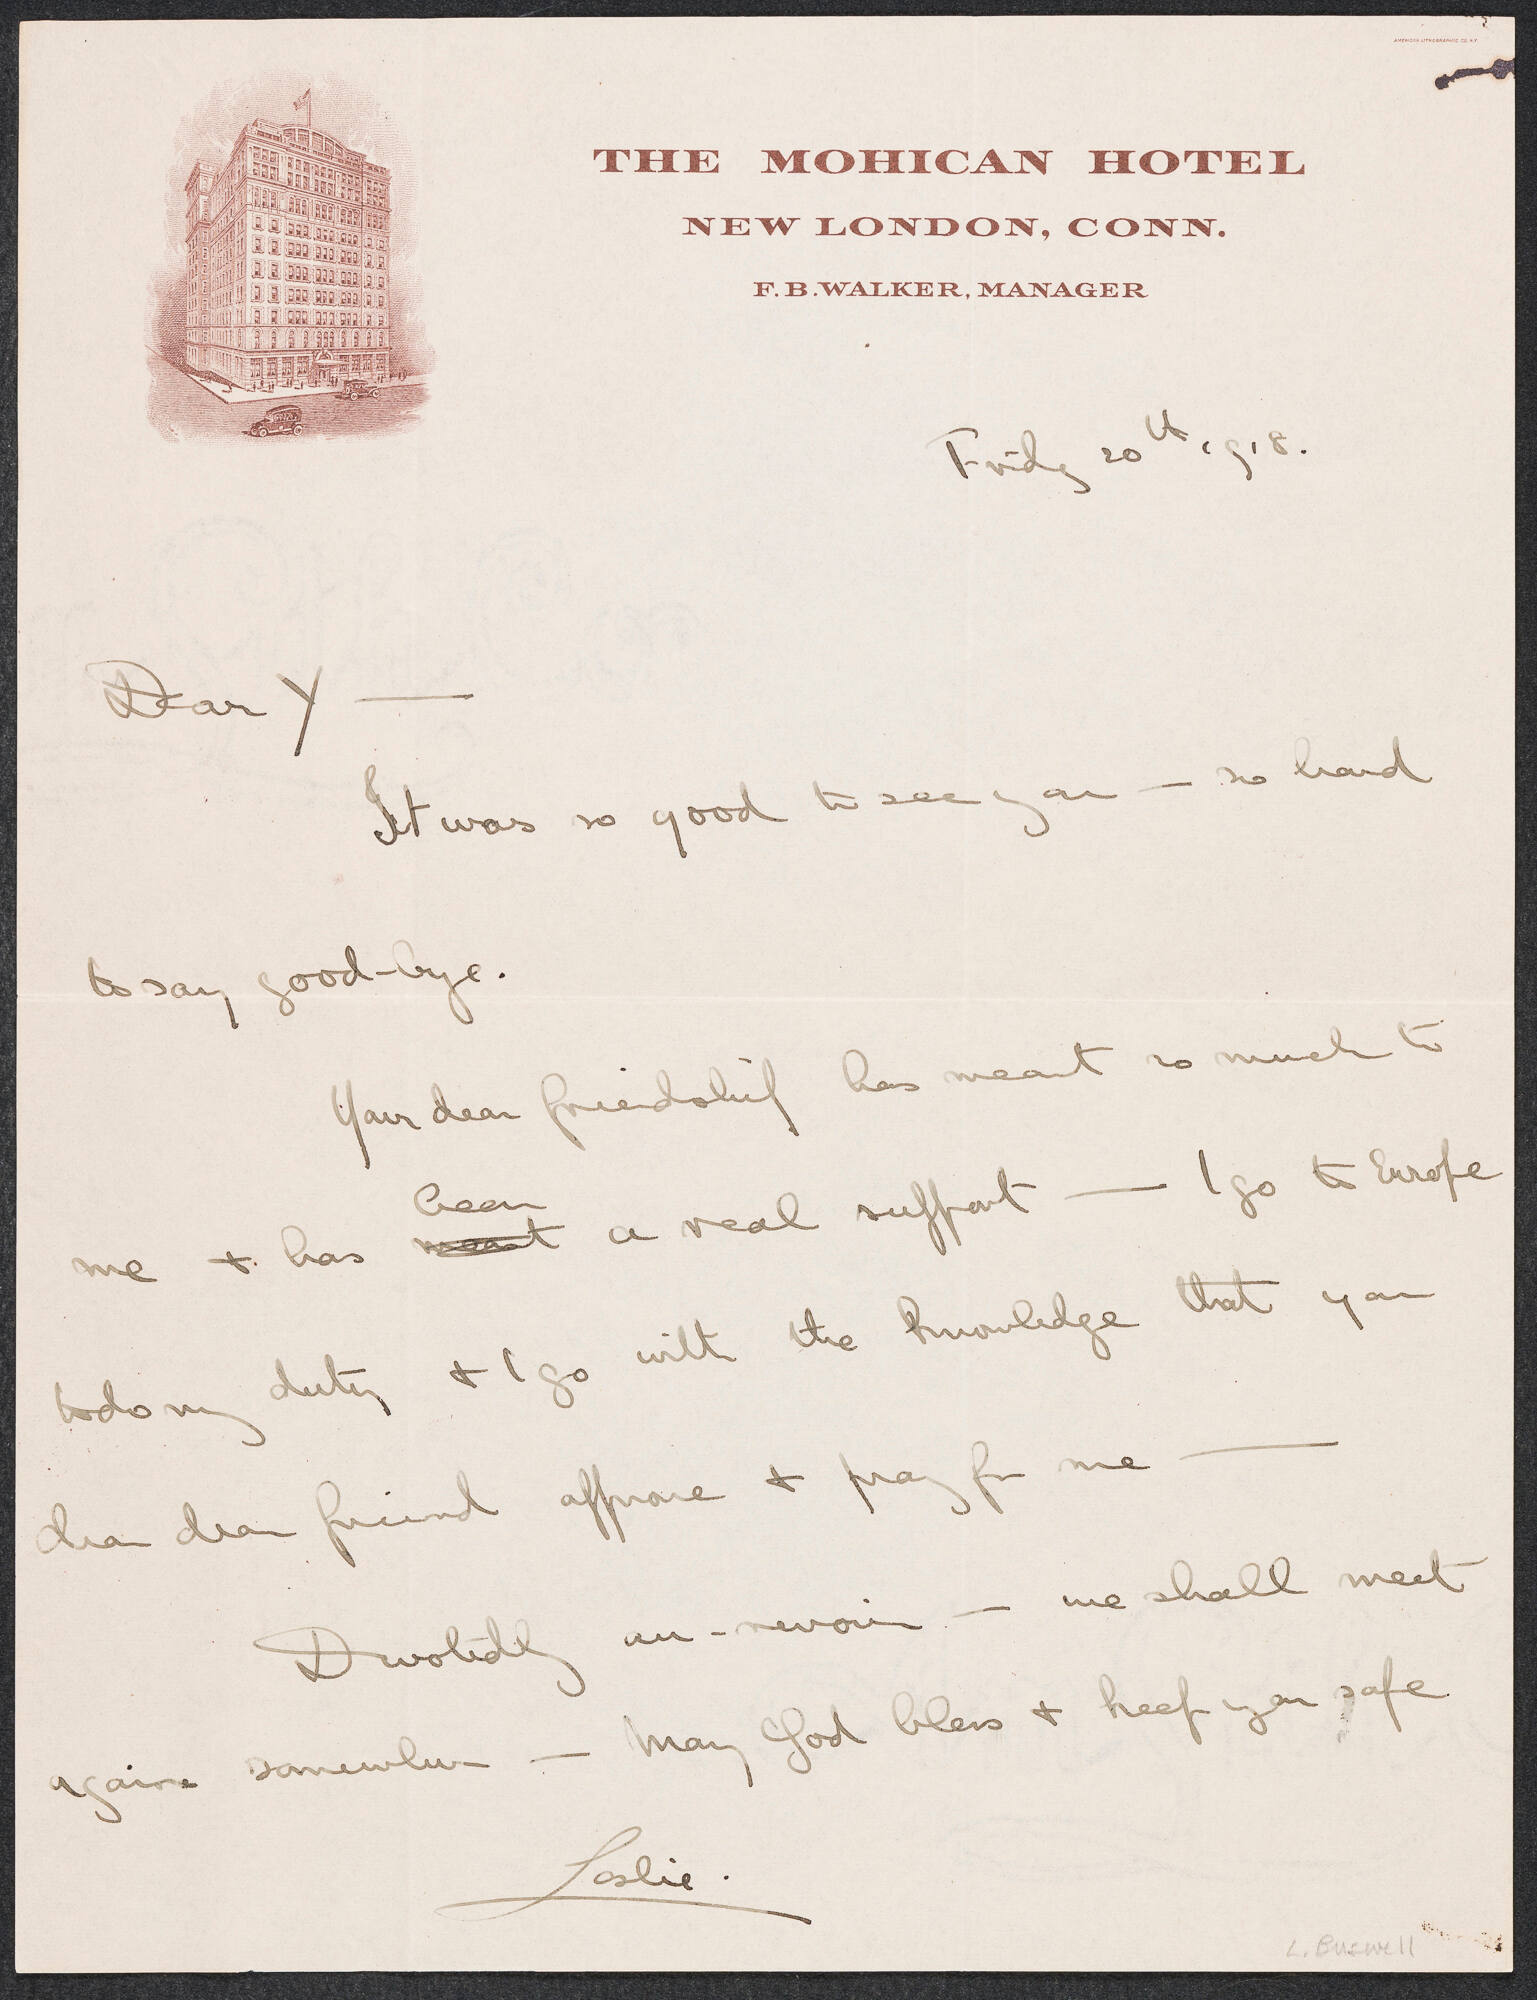 AMERICAN LITHOGRAPHIC CO. N.Y.
THE MOHICAN HOTEL
NEW LONDON, CONN.
F. B. WALKER, MANAGER
Friday 20th 1918.
Dear Y —
It was so good to see you — so hard
to say good-bye.
Your dear friendship has meant so much to
been
me + has meant a real support — I go to Europe
to do my duty + I go with the knowledge that you
dear dear friend approve + pray for me —
Devotedly au-revoir — we shall meet
again somewhere — May God bless + keep you safe
Leslie.
L. Buswell